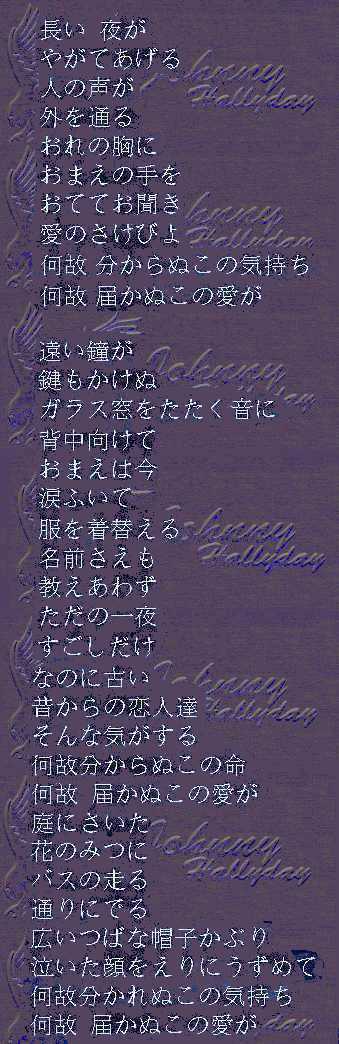 長い 夜が
やがてあげる
人の声が
外を通る
おれの胸に
おまえの手を
おててお聞き
愛のさけびよ
何故 分からぬこの気持ち
何故 届かぬこの愛が
遠い鐘が
鍵もかけぬ
ガラス窓をたたく音に
背中向けて
おまえは今
涙ふいて
服を着替える
名前さえも
教えあわず
ただの一夜
すごしだけ
なのに古い
昔からの恋人達
そんな気がする
何故分からぬこの命
何故 届かぬこの愛が
庭にさいた
花のみつに
バスの走る
通りにでる
広いつばな帽子かぶり
泣いた顔をえりにうずめて
何故分かれぬこの気持ち
何故 届かぬこの愛が
Johnny
Hallyday
Johnny
Hallyday
Johnny
Hallyday
Johnny
Hallyday
Johnny
Hallyday
Johnny
Hallyday